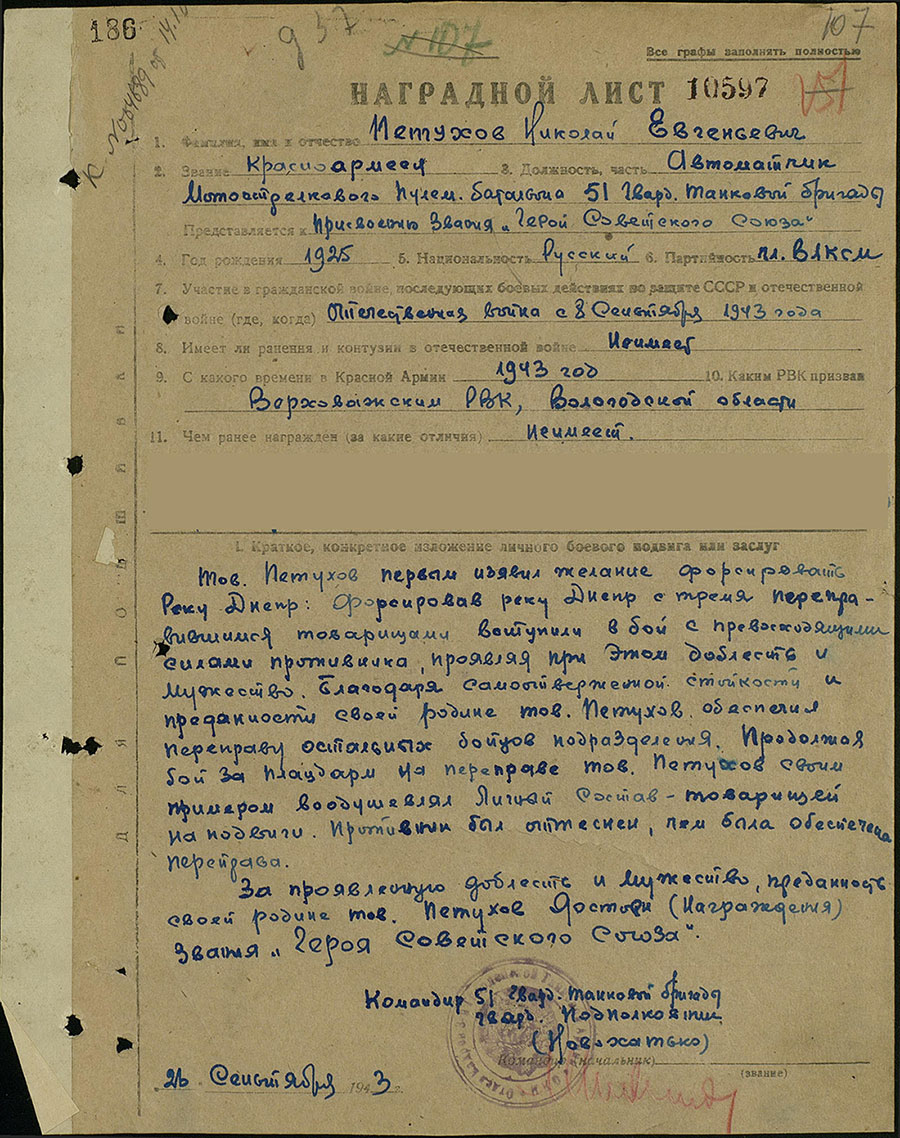 186
937
№ 107
107
К. №
от 14.10
Все графы заполнять полностью
НАГРАДНОЙ ЛИСТ 10597
1. Фамилия, имя и отчество Петухов Николай Евгеньевич
2. Звание красноармеец 3. Должность, часть Автоматчик
Мотострелкового Пулем. батальона 51 Гвард. Танковой бригады
Представляется к присвоению Звания „Герой Советского Союза"
4. Год рождения 1925 5. Национальность Русский 6. Партийность чл. ВЛКСМ
7. Участие в гражданской войне, последующих боевых действиях по защите СССР и отечественной
войне (где, когда) Отечественная война с 8 Сентября 1943 года
8. Имеет ли ранения и контузии в отечественной войне Неимеет
9. С какого времени в Красной Армии 1943 год 10. Каким РВК призван
Верховажским РВК, Вологодской области
11. Чем ранее награжден (за какие отличия) неимеет.
I. Краткое, конкретное изложение личного боевого подвига или заслуг
Тов. Петухов первым изявил желание форсировать
Реку Днепр: Форсировав реку Днепр с тремя перепра-
вившимся товарищами вступили в бой с превосходящими
силами противника, проявляя при этом доблесть и
мужество. Благодаря самоотверженой стойкости и
преданности своей родине тов. Петухов обеспечил
переправу остальных бойцов подразделения. Продолжая
бой за плацдарм на переправе тов. Петухов своим
примером воодушевлял личный состав – товарищей
на подвиги. Противник был оттеснен, чем была обеспечена
переправа.
За проявленную доблесть и мужество, преданность
своей родине тов. Петухов Достоен (Награждения)
звания „Героя Советского Союза".
Командир 51 Гвард. Танковой бригады
гвард. Подполковник
(Новохатько)
Командир (начальник)
(звание)
26 Сентября 1943 г.